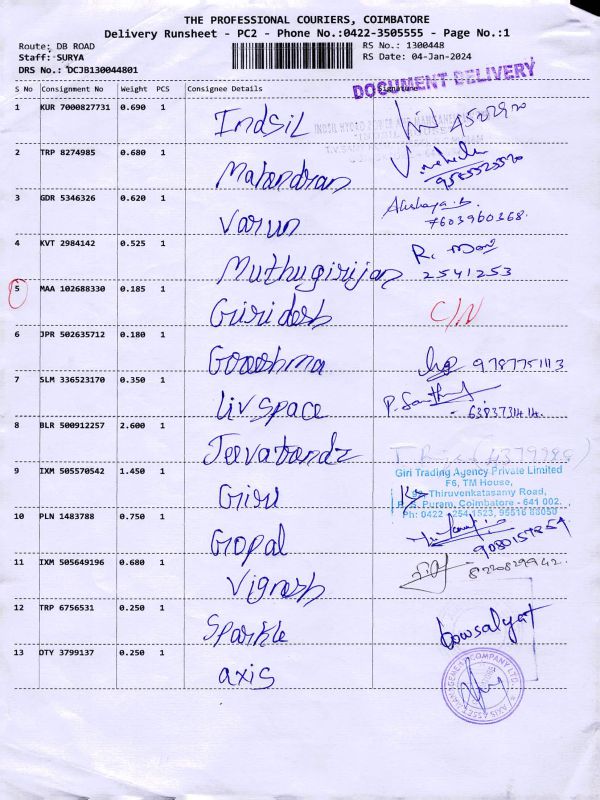 THE PROFESSIONAL COURIERS, COIMBATORE
Delivery Runsheet - PC2 - Phone No.:0422-3505555 - Page No.:1
Route: DB ROAD RS No.: 1300448
Staff: SURYA RS Date: 04-Jan-2024
DRS No.: DCJB130044801
DOCUMENT DELIVERY
S No Consignment No Weight PCS Consignee Details Signature
1 KUR 7000827731 0.690 1 Indsil
2 TRP 8274985 0.680 1 Mahandran
3 GDR 5346326 0.620 1 Varun Akshaya.
7603960368.
4 KVT 2984142 0.525 1 Muthugirijan R. Mani
2541253
5 MAA 102688330 0.185 1 Giridesh C/N
6 JPR 502635712 0.180 1 9787751113
7 SLM 336523170 0.350 1 Livspace P.
8 BLR 500912257 2.600 1
9 IXM 505570542 1.450 1 Giri
Giri Trading Agency Private Limited
F6, TM House,
Thiruvenkatasamy Road,
R.S. Puram, Coimbatore - 641 002.
Ph: 0422 - 2541523, 95516 88050
10 PLN 1483788 0.750 1 Gopal
11 IXM 505649196 0.680 1 Vignesh
12 TRP 6756531 0.250 1 Sparkle
13 DTY 3799137 0.250 1 axis
AXIS ASSET MANAGEMENT COMPANY LTD.